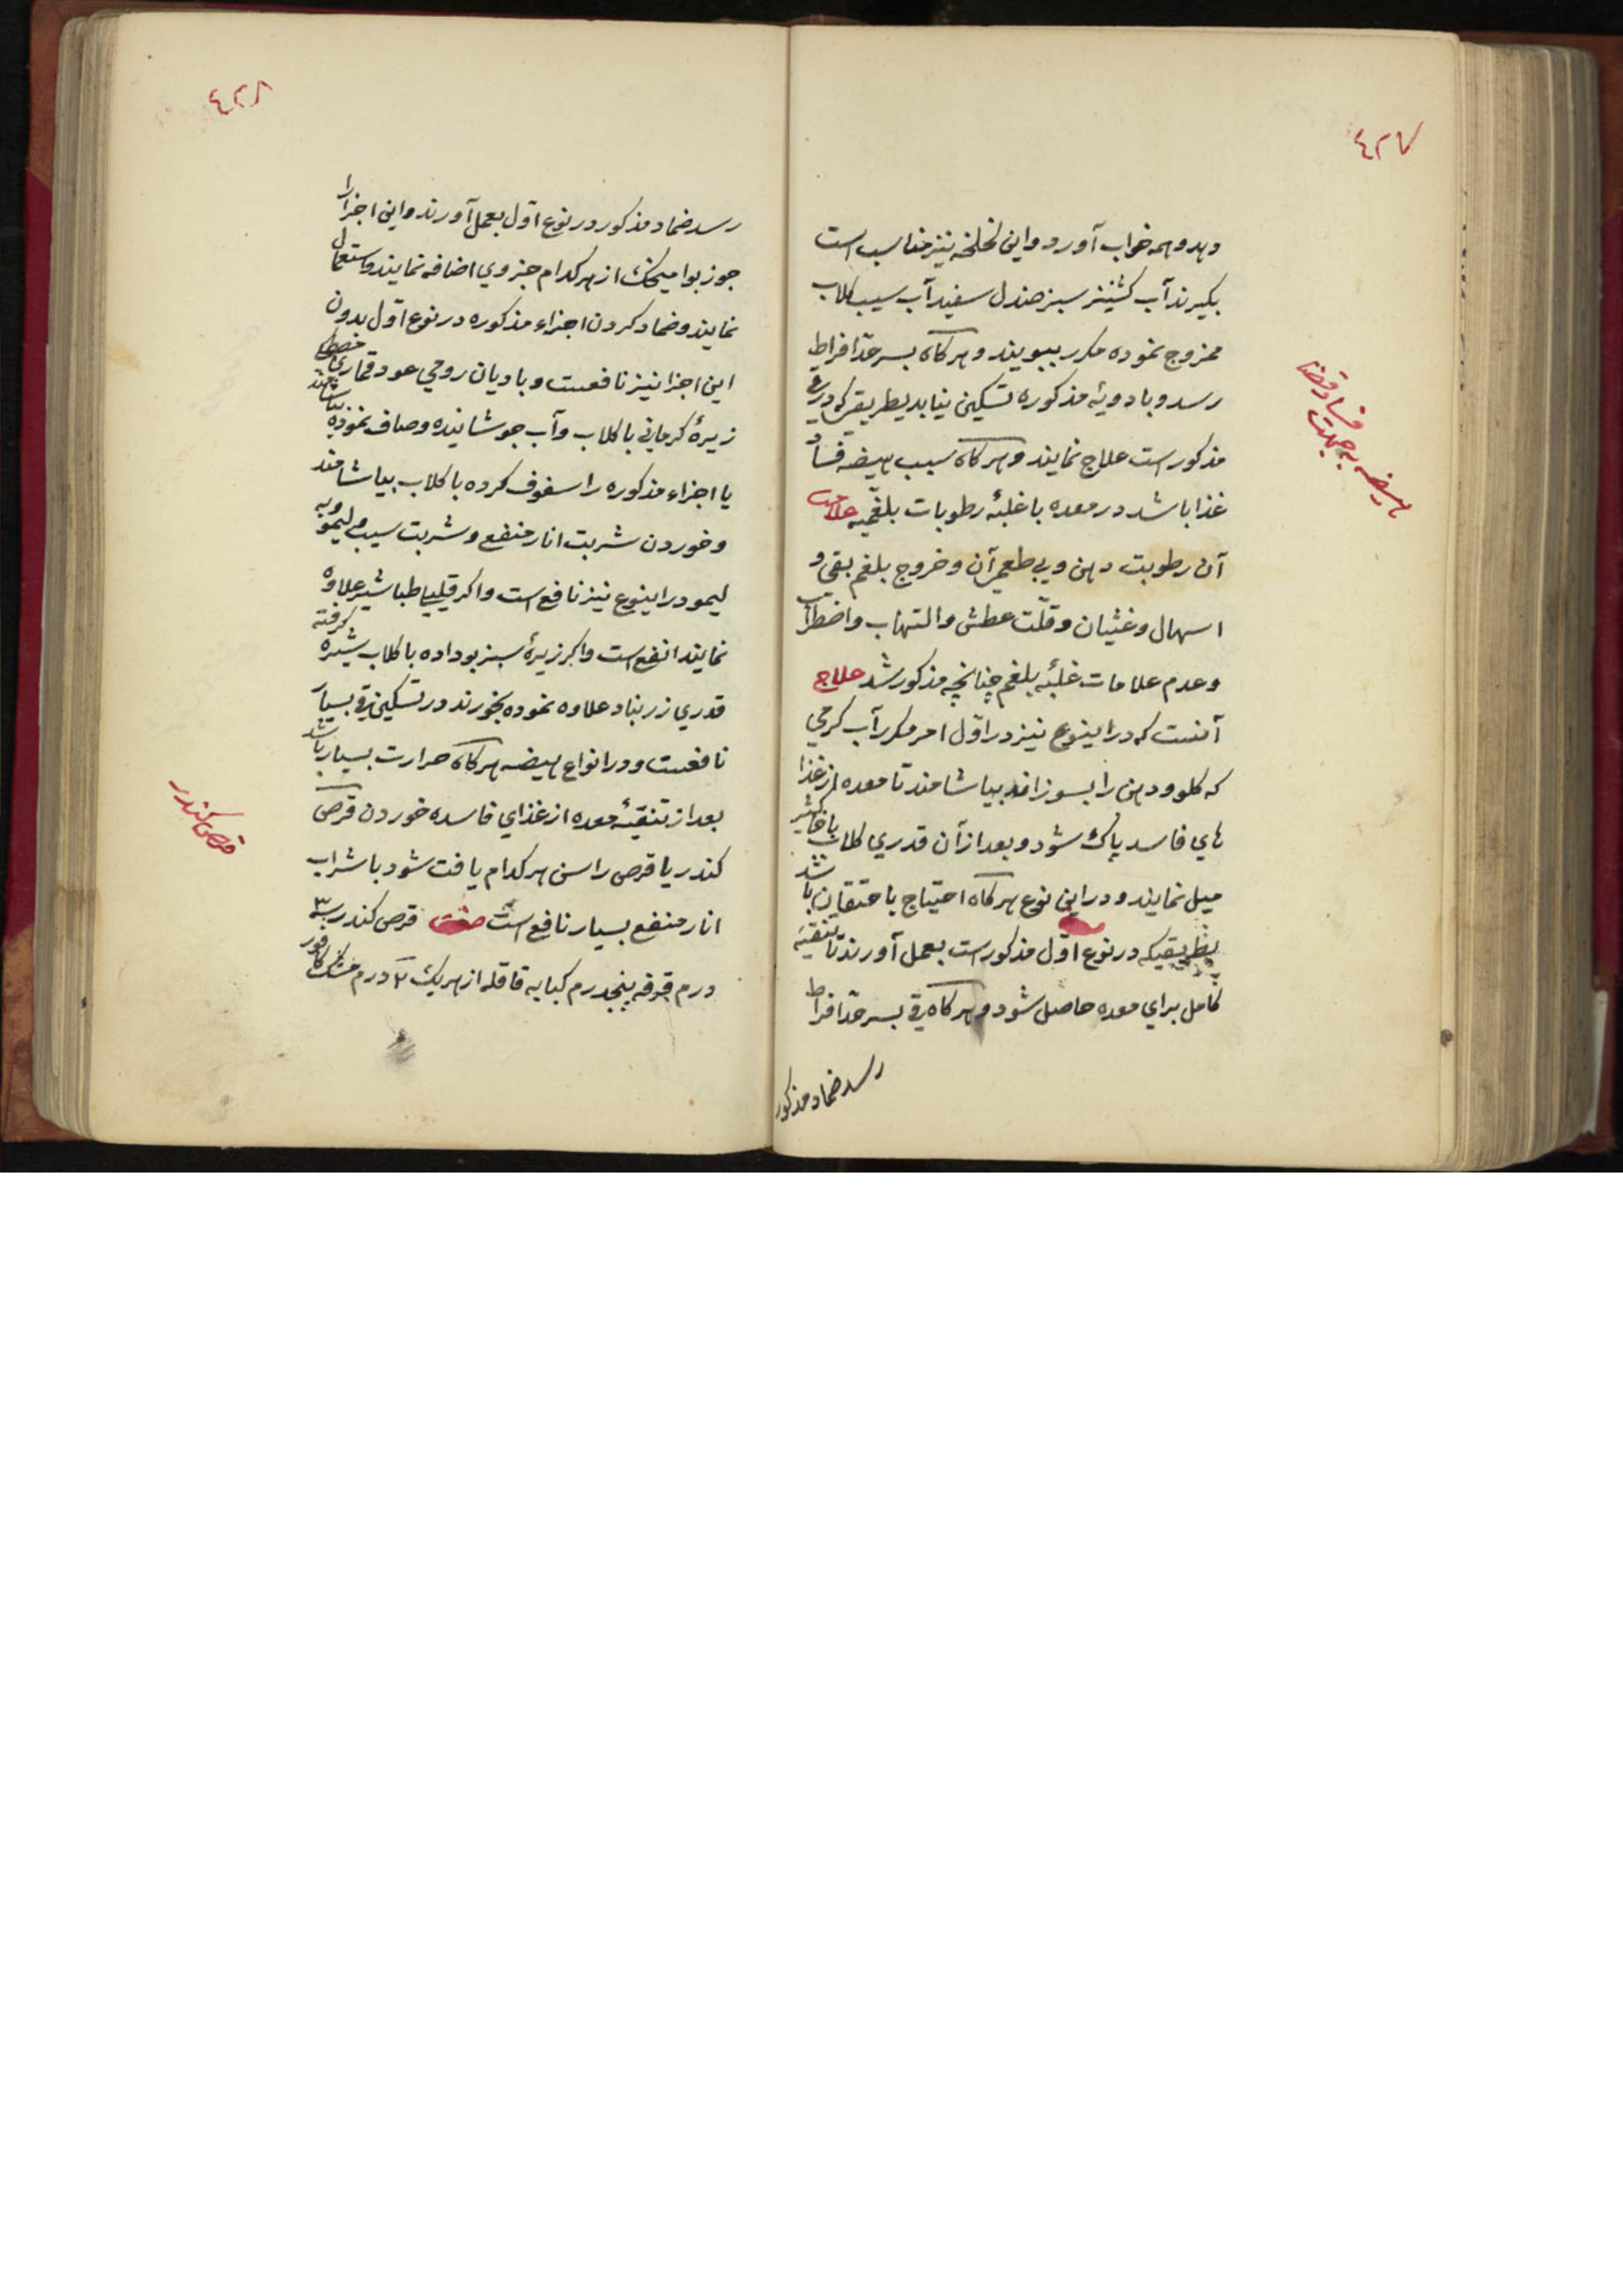 ٤٢٧
دهد و هم خواب آورد و این لخلخه نیز مناسب است
بکیرند آب کشنیز سبز صندل سفید آب سیب کلاب
ممزوج نموده مکرر ببویند و هرکاه بسر حدّ افراط
رسد و بادویهٔ مذکوره تسکین نیابد بطریقیکه در
مذکور است علاج نمایند و هرکاه سبب هیضه فساد
غذا باشد در معده با غلبهٔ رطوبات بلغمیه علامت
آن رطوبت دهن و بی طعمی آن و خروج بلغم بقی و
اسهال و غثیان و قلّت عطش و التهاب و اضطراب
و عدم علامات غلبهٔ بلغم چنانچه مذکور شد علاج
آنست که در اینوع نیز در اوّل امر مکرر آب کرمی
که کلو و دهن را بسوزاند بیاشامند تا معده از غذا
های فاسد پاک شود و بعد از آن قدری کلاب با خاکشیر
میل نمایند و در این نوع هرکاه احتیاج باحتقان باشد
بطریقیکه در نوع اوّل مذکور است بعمل آورند تا تنقیهٔ
کامل برای معده حاصل شود و هرکاه قی بسر حدّ افراط
رسد ضماد مذکور
هیضه بجهت فساد غذا
٤٢٨
رسد ضماد مذکور در نوع اوّل بعمل آورند و این اجزا را
جوز بوا میخک از هرکدام جزوی اضافه نمایند و استعمال
نمایند و ضماد کردن اجزاء مذکوره در نوع اوّل بدون
این اجزا نیز نافعست و بادیان رومی عود قماری مصطکی
زیرهٔ کرمانی با کلاب و آب جوشانیده و صاف نموده بیاشامند
یا اجزاء مذکوره را سفوف کرده با کلاب بیاشامند
و خوردن شربت انار منعنع و شربت سیب و لیمو و به
لیمو در اینوع نیز نافع است و اکر قلیلی طباشیر علاوه
نمایند انفع است و اکر زیرهٔ سبز بوداده با کلاب شیره کرفته
قدری زرنباد علاوه نموده بخورند در تسکین قی بسیار
نافعست و در انواع هیضه هرکاه حرارت بسیار باشد
بعد از تنقیهٔ معده از غذای فاسده خوردن قرص
کندر یا قرص راسن هرکدام یافت شود با شراب
انار منعنع بسیار نافع است صفت قرص کندر ۳
درم قرفه پنجدرم کبابه قاقله از هریک ۲ درم مشک کافور
قرص کندر